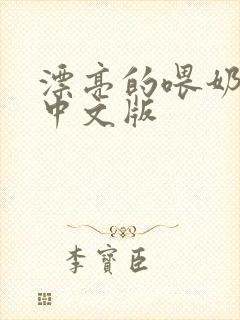 漂亮的喂奶
中文版
李寶臣